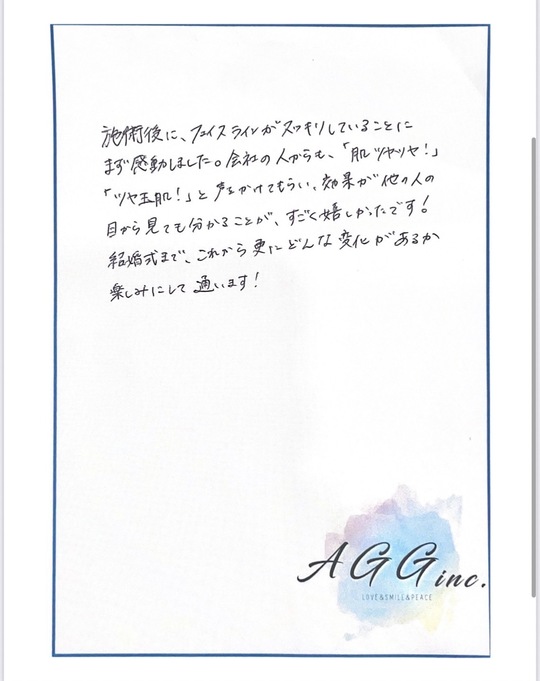 施術後に、フェイスラインがスッキリしていることに
まず感動しました。会社の人からも、「肌ツヤツヤ！」
「ツヤ玉肌！」と声をかけてもらい、効果が他の人の
目から見ても分かることが、すごく嬉しかったです！
結婚式まで、これから更にどんな変化があるか
楽しみにして通います！
AGG inc.
LOVE&SMILE&PEACE